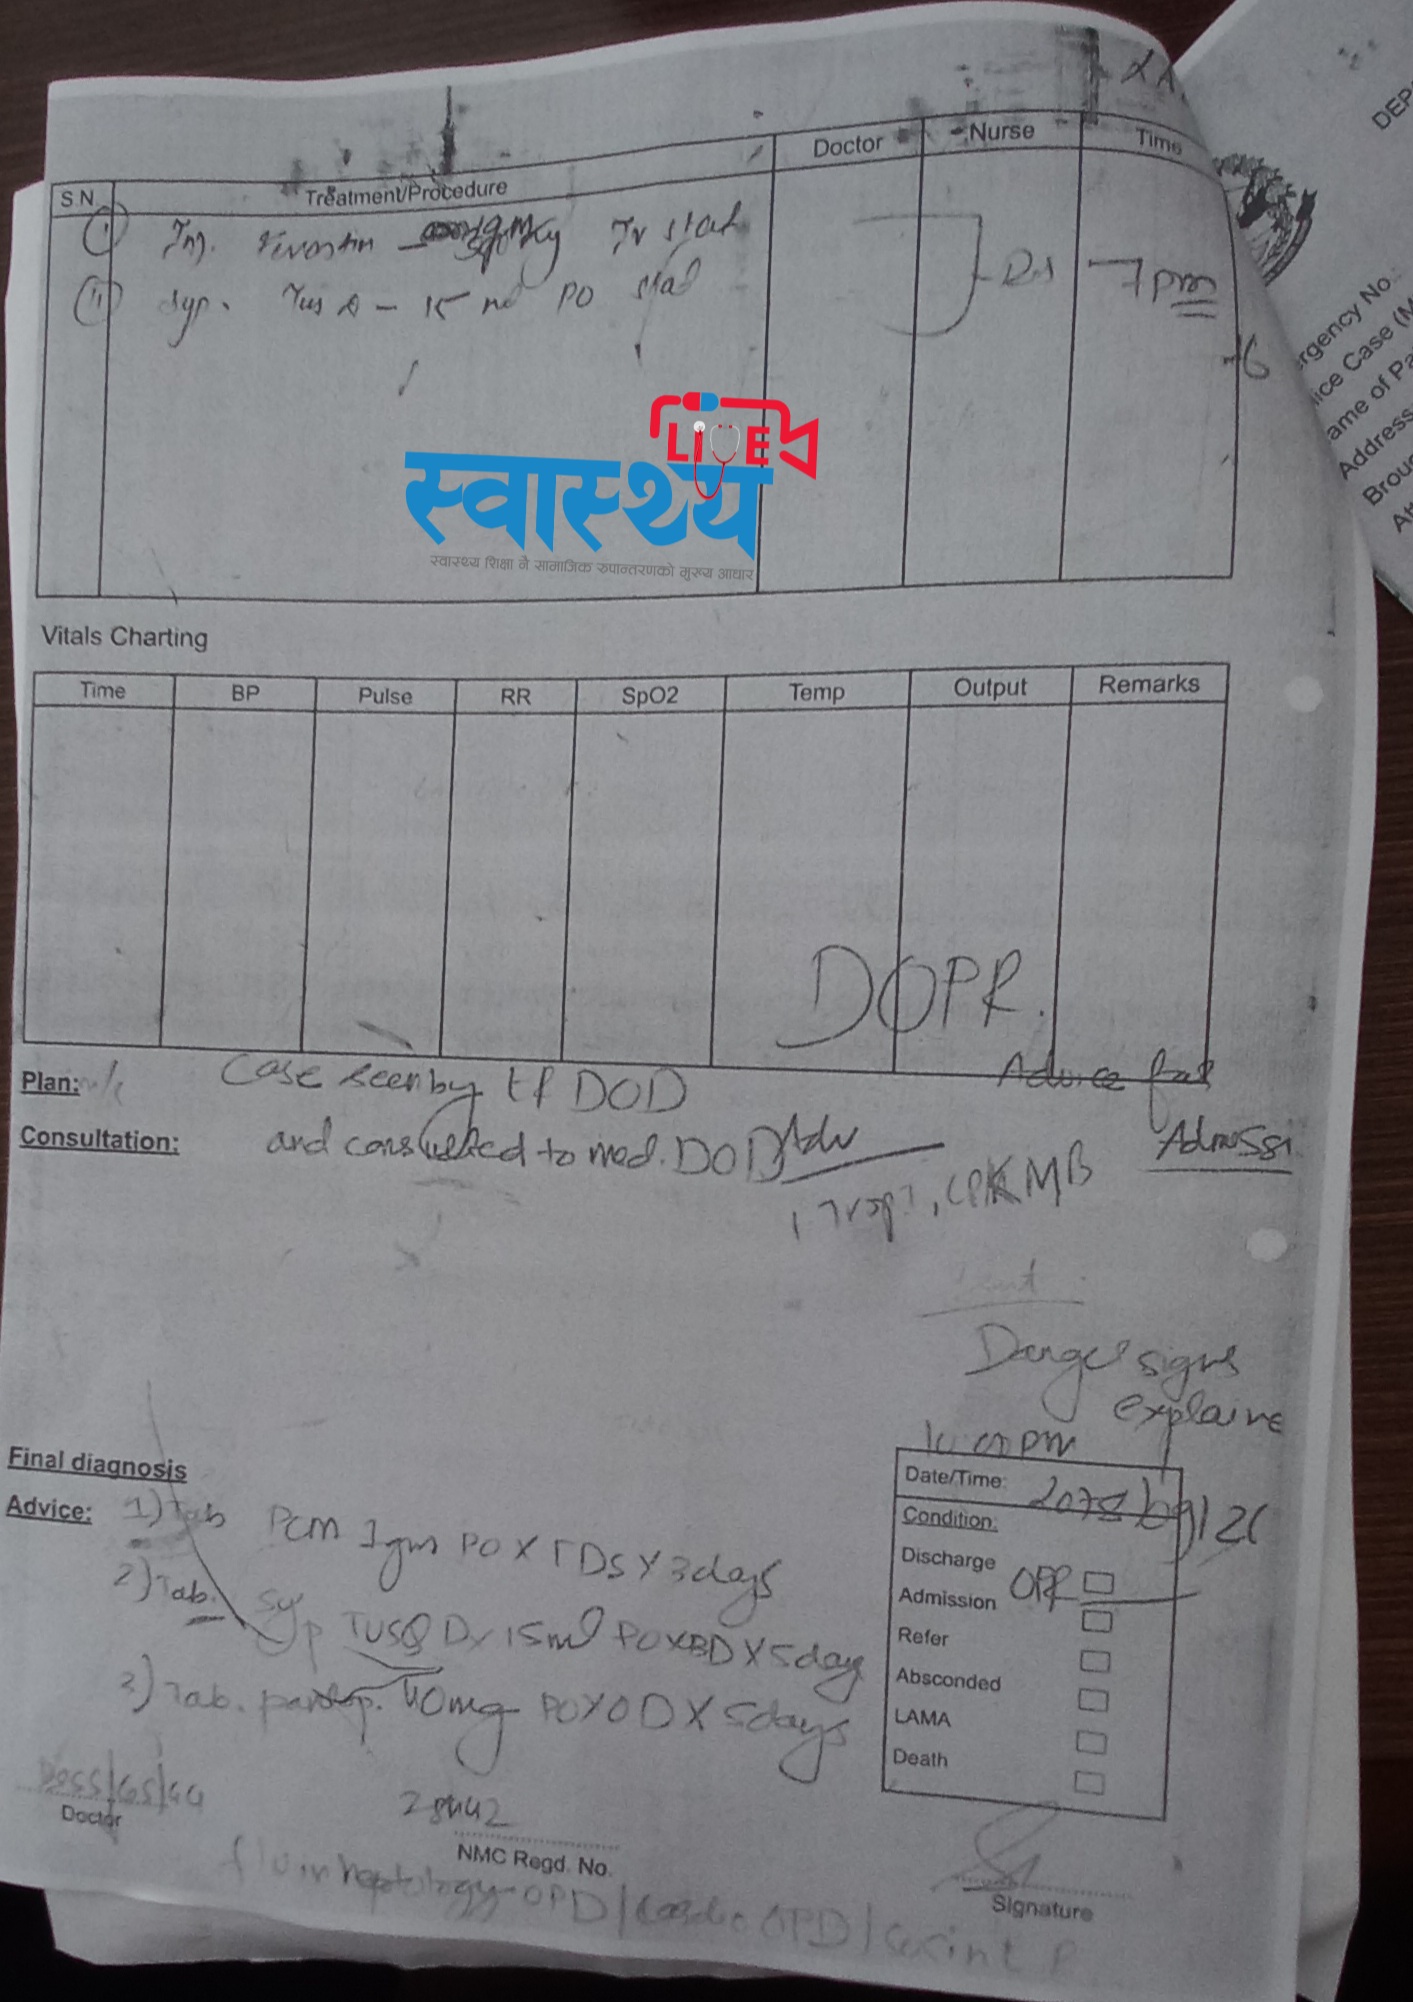 Doctor Nurse Time
S.N. Treatment/Procedure
Inj. IV stat
Syp. Tus D - 15 ml PO stat
7 pm
LIVE
स्वास्थ्य
स्वास्थ्य शिक्षा नै सामाजिक रुपान्तरणको मुख्य आधार
DEPA
rgency No.:
lice Case (M
ame of Pa
Address
Broug
Att
Vitals Charting
Time BP Pulse RR SpO2 Temp Output Remarks
DOPR.
Plan: Case seen by DOD
Advice for
Admissi
Consultation: and consulted to med. DOD Adv
Trop I, CPKMB
Danger signs
explaine
Final diagnosis
Advice: 1) Tab PCM 1gm PO X TDS X 3days
2) Tab. Syp TUSQ Dx 15ml PO X BD X 5days
3) Tab. pantop. 40mg PO X OD X 5days
Date/Time: 2078/09/26
Condition:
Discharge
Admission
Refer
Absconded
LAMA
Death
Doctor
28442
NMC Regd. No.
Signature
OPD / Cardio OPD /